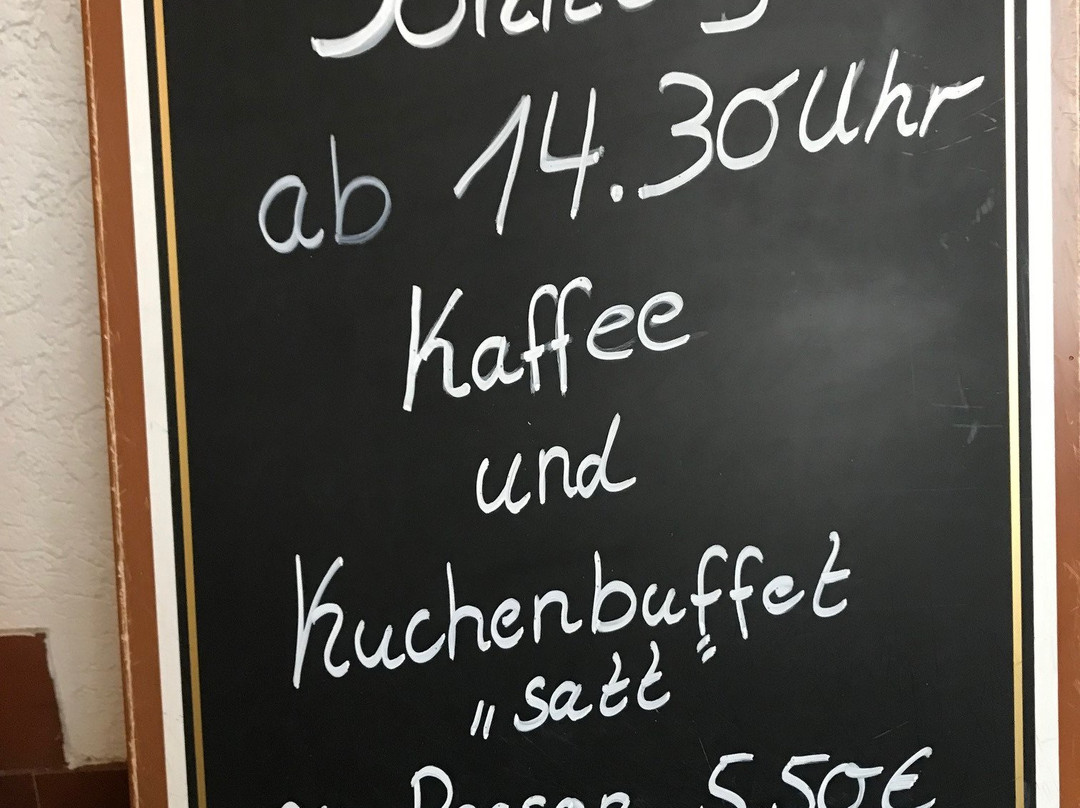 Sonntag
ab 14.30 Uhr
Kaffee
und
Kuchenbuffet
„satt"
Person 5,50€